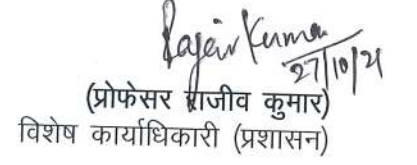 Rajeev Kumar
27/10/21
(प्रोफेसर राजीव कुमार)
विशेष कार्याधिकारी (प्रशासन)